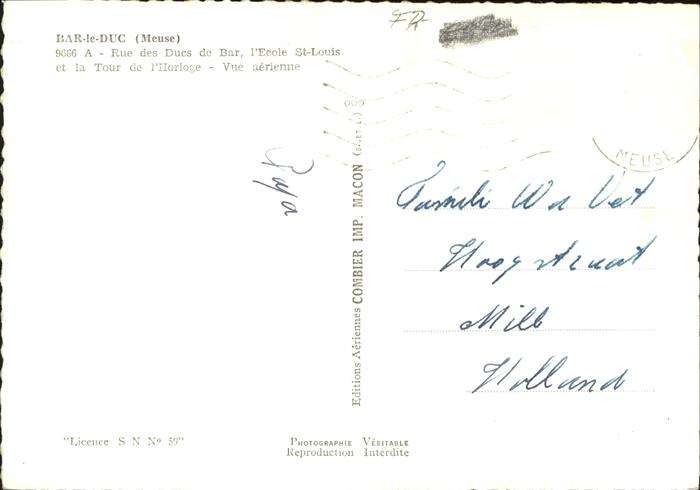 BAR-le-DUC (Meuse)
9666 A - Rue des Ducs de Bar, l'Ecole St-Louis
et la Tour de l'Horloge - Vue aérienne
MEUSE
Papa
Editions Aériennes COMBIER IMP. MACON
Famili
Hoogstraat
Mill
Holland
"Licence S N Nº 59"
PHOTOGRAPHIE VÉRITABLE
Reproduction Interdite